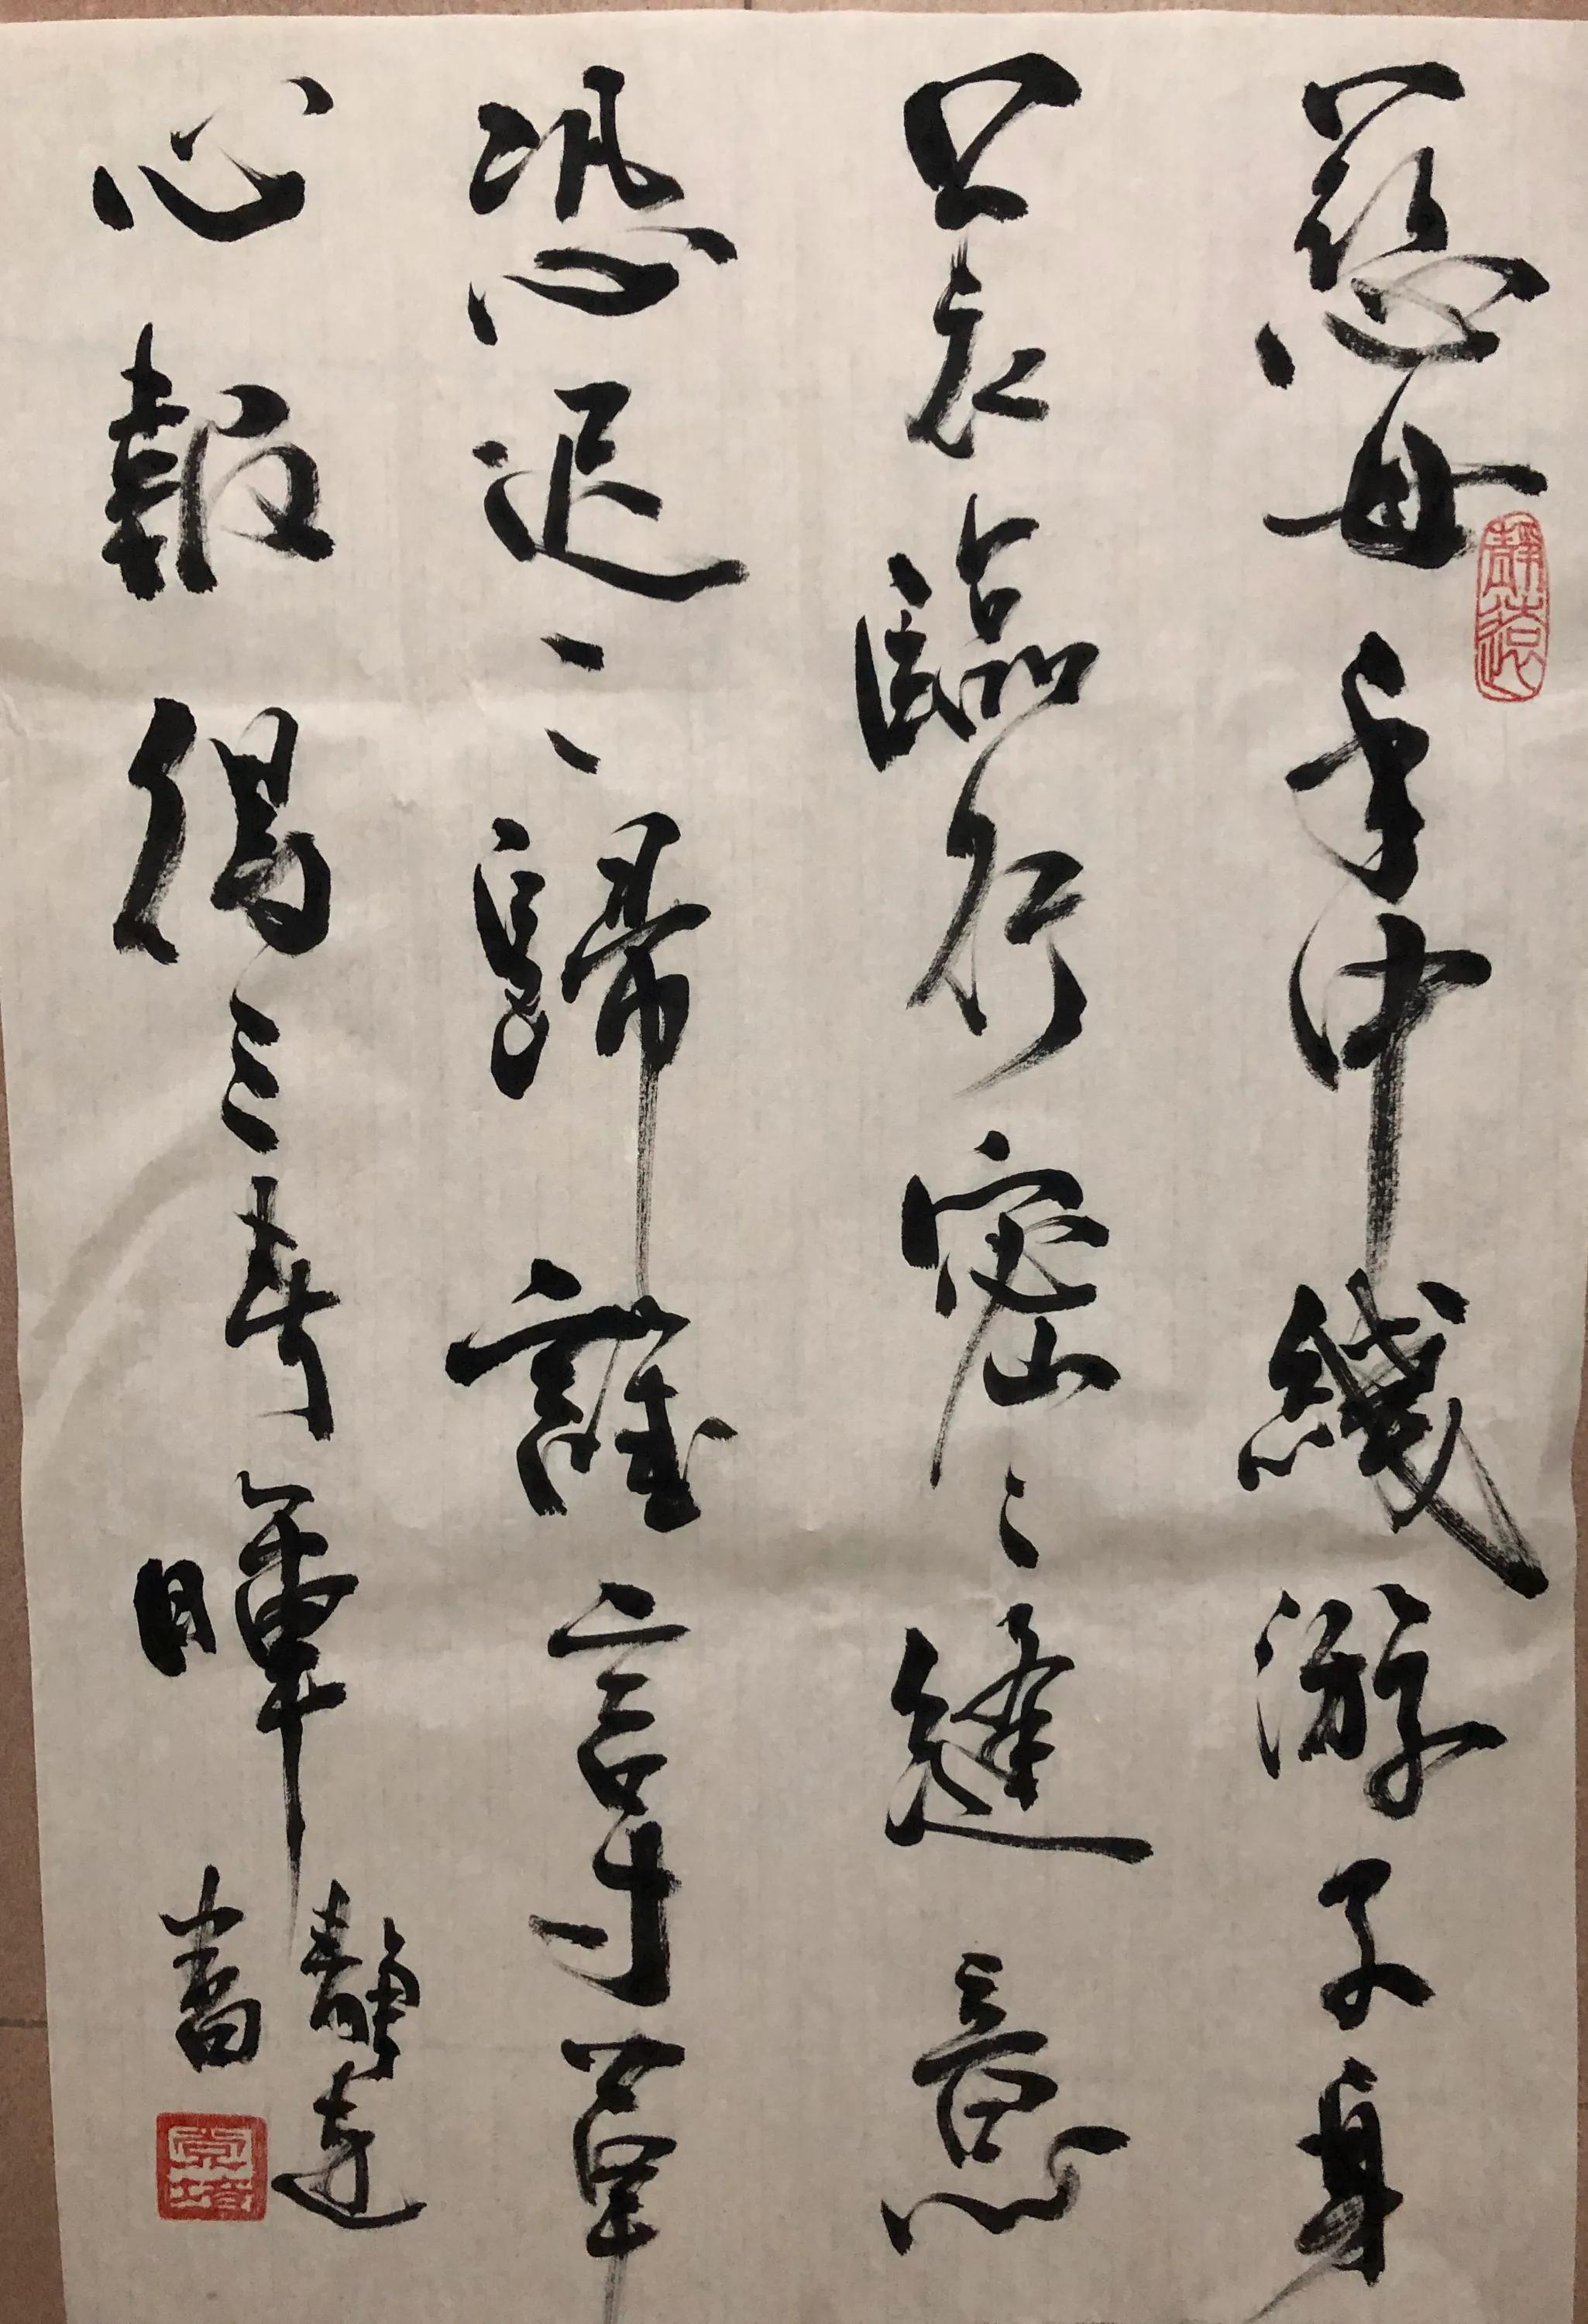 慈母手中綫游子身
上衣臨行密〻縫意
恐迟〻歸誰言寸草
心報得三春暉
靜遠
書
靜遠